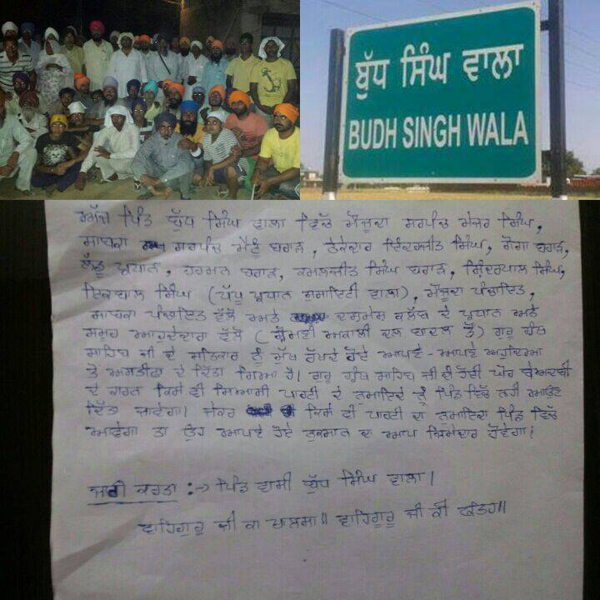 ਬੁੱਧ ਸਿੰਘ ਵਾਲਾ
BUDH SINGH WALA
ਅੱਜ ਪਿੰਡ ਬੁੱਧ ਸਿੰਘ ਵਾਲਾ ਵਿਖੇ ਮੌਜੂਦਾ ਸਰਪੰਚ ਮੇਜਰ ਸਿੰਘ,
ਸਾਬਕਾ ਸਰਪੰਚ ਬਰਾੜ, ਠੇਕੇਦਾਰ ਇੰਦਰਜੀਤ ਸਿੰਘ, ਗੋਗਾ ਬਰਾੜ,
ਲੱਡੂ ਪ੍ਰਧਾਨ, ਹਰਮਨ ਬਰਾੜ, ਕਮਲਜੀਤ ਸਿੰਘ ਬਰਾੜ, ਸ਼ਿੰਦਰਪਾਲ ਸਿੰਘ,
ਇਕਬਾਲ ਸਿੰਘ (ਪੱਪੂ ਪ੍ਰਧਾਨ ਸੁਸਾਇਟੀ ਵਾਲਾ), ਮੌਜੂਦਾ ਪੰਚਾਇਤ,
ਸਾਬਕਾ ਪੰਚਾਇਤ ਵੱਲੋਂ ਅਤੇ ਦਸਮੇਸ਼ ਕਲੱਬ ਦੇ ਪ੍ਰਧਾਨ ਅਤੇ
ਸਮੂਹ ਅਹੁਦੇਦਾਰਾਂ ਵੱਲੋਂ (ਸ਼੍ਰੋਮਣੀ ਅਕਾਲੀ ਦਲ ਬਾਦਲ ਤੋਂ) ਗੁਰੂ ਗ੍ਰੰਥ
ਸਾਹਿਬ ਜੀ ਦੇ ਸਤਿਕਾਰ ਨੂੰ ਮੁੱਖ ਰੱਖਦੇ ਹੋਏ ਆਪਣੇ - ਆਪਣੇ ਅਹੁਦਿਆਂ
ਤੋਂ ਅਸਤੀਫਾ ਦੇ ਦਿੱਤਾ ਗਿਆ ਹੈ। ਗੁਰੂ ਗ੍ਰੰਥ ਸਾਹਿਬ ਜੀ ਦੀ ਹੋਈ ਘੋਰ ਬੇਅਦਬੀ
ਦੇ ਕਾਰਨ ਕਿਸੇ ਵੀ ਸਿਆਸੀ ਪਾਰਟੀ ਦੇ ਨੁਮਾਇੰਦੇ ਨੂੰ ਪਿੰਡ ਵਿੱਚ ਨਹੀਂ ਆਉਣ
ਦਿੱਤਾ ਜਾਵੇਗਾ। ਜੇਕਰ ਕਿਸੇ ਵੀ ਪਾਰਟੀ ਦਾ ਨੁਮਾਇੰਦਾ ਪਿੰਡ ਵਿੱਚ
ਆਵੇਗਾ ਤਾਂ ਉਹ ਆਪਣੇ ਹੋਏ ਨੁਕਸਾਨ ਦਾ ਆਪ ਜ਼ਿੰਮੇਦਾਰ ਹੋਵੇਗਾ।
ਜਾਰੀ ਕਰਤਾ :-> ਪਿੰਡ ਵਾਸੀ ਬੁੱਧ ਸਿੰਘ ਵਾਲਾ।
ਵਾਹਿਗੁਰੂ ਜੀ ਕਾ ਖਾਲਸਾ॥ ਵਾਹਿਗੁਰੂ ਜੀ ਕੀ ਫਤਿਹ॥